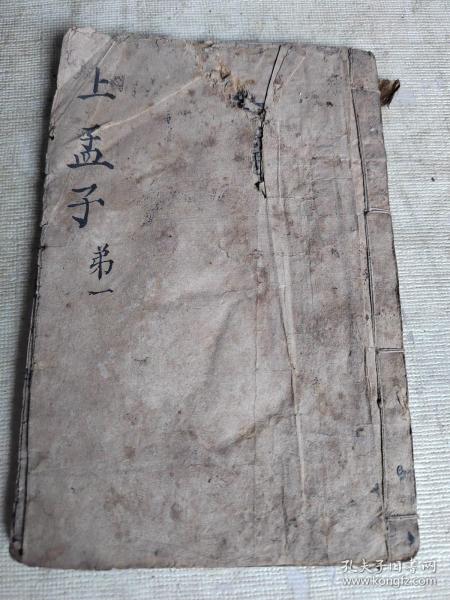 上孟子
弟一
孔夫子旧书网
www.kongfz.com